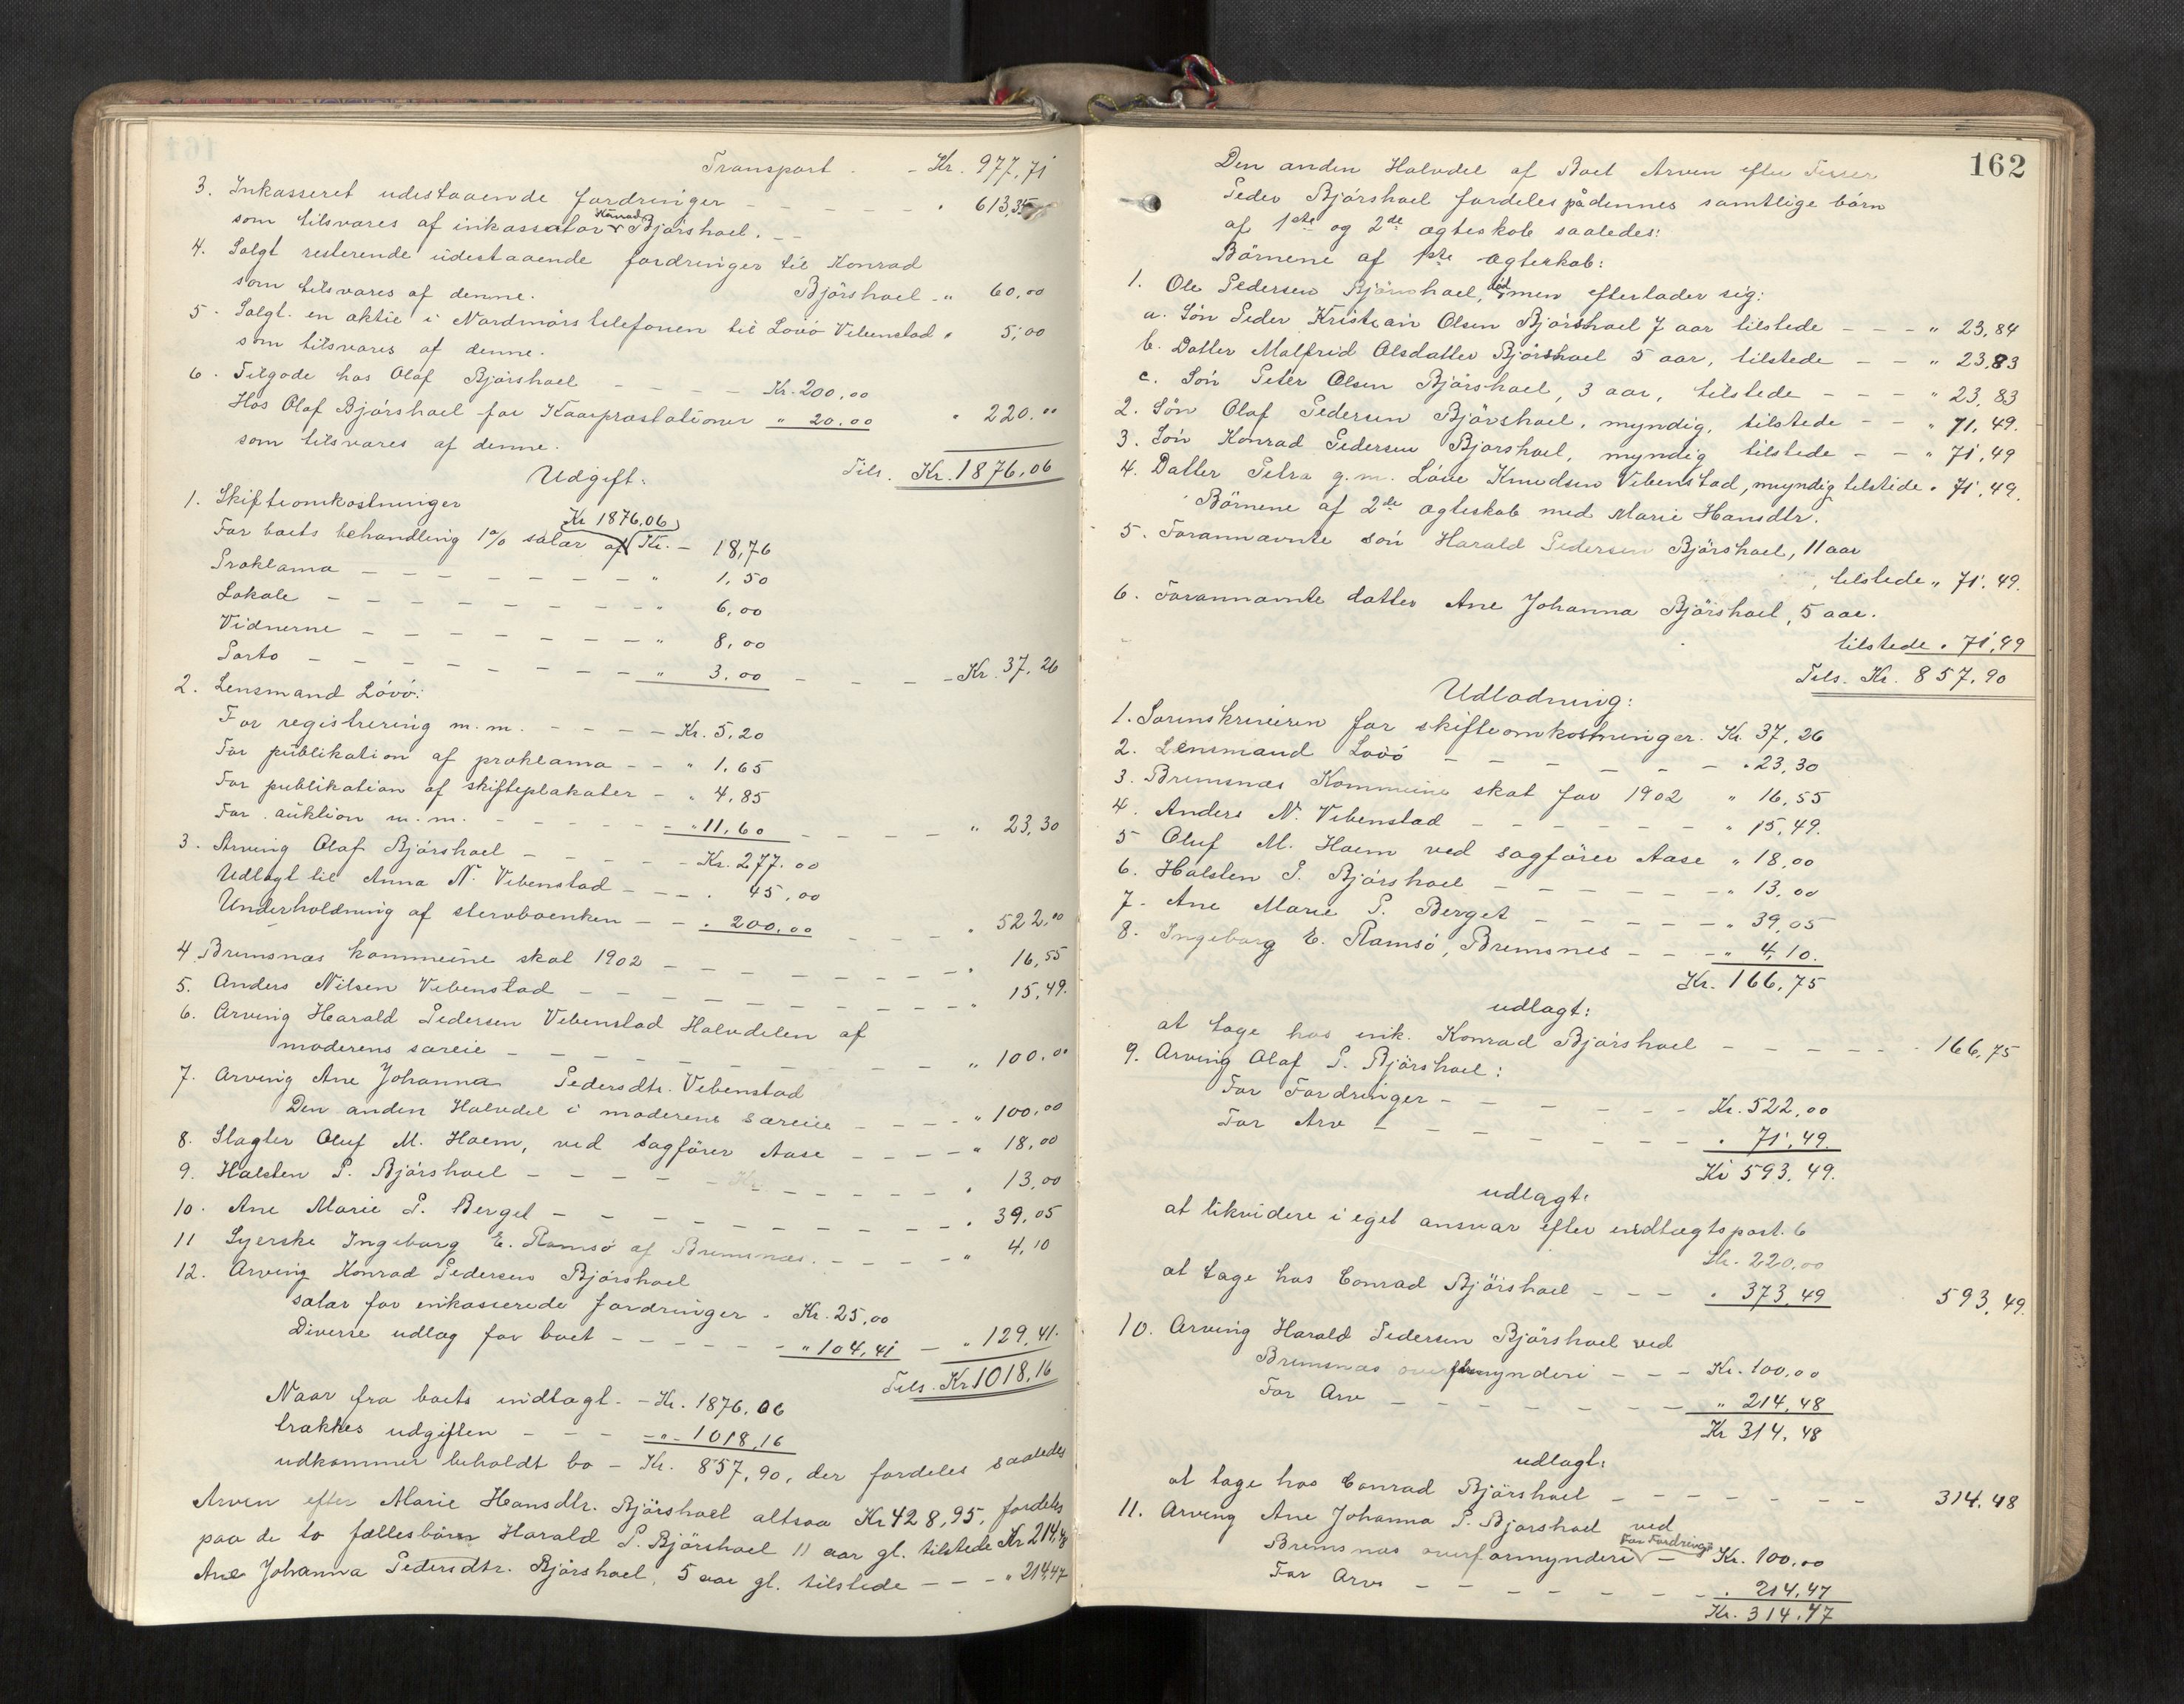 Transport - Kr. 977,71
3. Inkasseret udestaaende fordringer - - - - - " 613,35
som tilsvares af inkassator Konrad Bjørshoel. - -
4. Solgt resterende udestaaende fordringer til Konrad
Bjørshoel - " 60,00
som tilsvares af denne.
5. Solgt en aktie i Nordmørstelefonen til Lövö Vebenstad " 5,00
som tilsvares af denne.
6. Tilgode hos Olaf Bjørshoel - - - - Kr. 200,00
Hos Olaf Bjørshoel for Kaarpræstationer " 20,00 " 220.00
som tilsvares af denne.
Tils. Kr. 1876,06
Udgift:
1. Skifteomkostninger
Kr 1876,06
For boets behandling 1% salær af Kr. - 18,76
Proklama - - - - - - - " 1,50
Lokale - - - - - - - - " 6,00
Vidnerne - - - - - - - " 8,00
Porto - - - - - - - - " 3,00 - - - - Kr. 37,26
2. Lensmand Lövö:
For registrering m.m. - - - - Kr. 5,20
For publikation af proklama - - " 1,65
For publikation af skifteplakater - " 4,85
For auktion m.m. - - - - - " 11,60 - - - - " 23,30
3. Arving Olaf Bjørshoel - - - - - Kr. 277.00
Udlagt til Anna N. Vebenstad - - - . 45,00
Underholdning af stervboenken - - . 200,00 - - - " 522,00
4 Bremsnæs kommune skat 1902 - - - - - - - - " 16,55
5. Anders Nilsen Vebenstad - - - - - - - - - " 15,49.
6. Arving Harald Pedersen Vebenstad Halvdelen af
moderens særeie - - - - - - - - - - " 100.00
7. Arving Ane Johanna Pedersdtr. Vebenstad
Den anden Halvdel i moderens særeie - - - - " 100,00
8. Slagter Oluf M. Hoem, ved sagfører Aase - - - - " 18,00
9. Halsten P. Bjørshoel - - - - - - - - - " 13,00
10. Ane Marie P. Berget - - - - - - - - - - . 39,05
11 Syerske Ingeborg E. Ramsö af Bremsnæs. - - - - " 4,10
12. Arving Konrad Pedersen Bjørshoel
salær for inkasserede fordringer . Kr. 25,00
Diverse udlæg for boet - - - - - " 104,41 - " 129,41.
Tils. Kr 1018,16
Naar fra boets indtægt. - Kr. 1876,06
trækkes udgiften - - - - " - 1018,16
udkommer beholdt bo - Kr. 857,90, der fordeles saaledes
Arven efter Marie Hansdtr. Bjørshoel altsaa Kr 428,95, fordeles
paa de to fællesbørn Harald P. Bjørshoel 11 aar gl. tilstede Kr 214,48
Ane Johanna Pedersdtr. Bjørshoel, 5 aar gl. tilstede - - - " 214,47
162
Den anden Halvdel af Boet Arven efter
Peder Bjørshoel fordeles på dennes samtlige børn
af 1ste og 2de ægteskab saaledes:
Børnene af 1ste ægteskab:
1. Ole Pedersen Bjørshoel, død men efterlader sig:
a. Søn Peder Kristian Olsen Bjørshoel 7 aar tilstede - - - " 23,84
b. Datter Malfrid Olsdatter Bjørshoel 5 aar, tilstede - - " 23,83
c. Søn Peter Olsen Bjørshoel, 3 aar, tilstede - - - " 23,83
2. Søn Olaf Pedersen Bjørshoel, myndig, tilstede - - " 71,49.
3. Søn Konrad Pedersen Bjørshoel, myndig tilstede - - " 71,49
4. Datter Petra g.m. Löve Knudsen Vebenstad, myndig tilstede. 71,49.
Børnene af 2de ægteskab med Marie Hansdtr.
5. Forannævnte søn Harald Pedersen Bjørshoel, 11 aar
tilstede " 71,49.
6. Forannævnte datter Ane Johanna Bjørshoel, 5 aar.
tilstede . 71,49
Tils. Kr. 857,90
Udlodning:
1. Sorenskriveren for skifteomkostninger. Kr. 37,26
2. Lensmand Lövö - - - - - - . 23,30
3. Bremsnæs Kommune skat for 1902 " 16,55
4. Anders N. Vebenstad - - - - - - " 15,49.
5 Oluf M. Hoem ved sagfører Aase " 18,00
6. Halsten P. Bjørshoel - - - - - - " 13,00
7. Ane Marie P. Berget - - - - - - " 39,05
8. Ingeborg E. Ramsö, Bremsnes - - - " 4,10.
Kr. 166,75
udlagt:
at tage hos ink. Konrad Bjørshoel - - - - - - 166,75
9. Arving Olaf P. Bjørshoel:
For Fordringer - - - - - - Kr. 522,00
For Arv - - - - - - - . 71,49.
Kr 593,49.
udlagt:
at likvidere i eget ansvar efter indtægtspost. 6
Kr. 220,00
at tage hos Conrad Bjørshoel - - - . 373,49 593,49.
10. Arving Harald Pedersen Bjørshoel ved
Bremsnæs overformynderi - - - Kr. 100,00
For Arv - - - - - - - " 214,48
Kr 314,48
udlagt:
at tage hos Conrad Bjørshoel - - - - - - - 314,48
11. Arving Ane Johanna P. Bjørshoel ved
Bremsnæs overformynderi For Fordring - Kr. 100,00
For Arv - - - - - - - . 214,47
Kr. 314,47